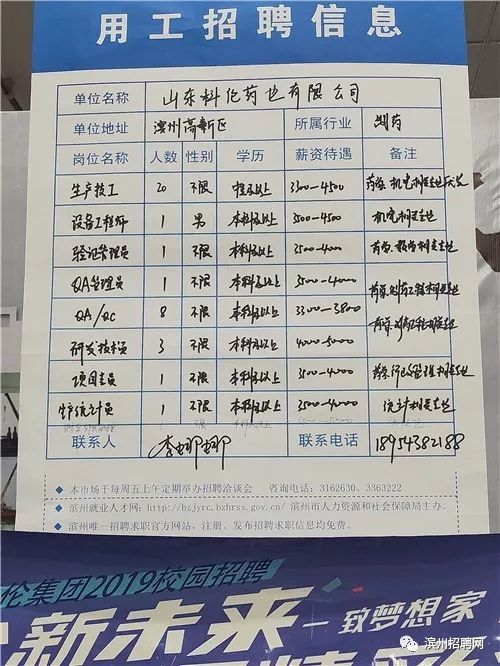 用工招聘信息
单位名称 山东科伦药业有限公司
单位地址 滨州高新区 所属行业 制药
岗位名称 人数 性别 学历 薪资待遇 备注
生产技工 20 不限 以上 3300-4500 药学、机电相关专业
设备工程师 1 男 本科及以上 3500-4500 机电相关专业
验证管理员 1 不限 本科及以上 3500-4000 相关专业
QA管理员 1 不限 本科及以上 3500-4000 药学、制药工程相关专业
QA/QC 8 不限 本科及以上 3300-3800 药学、制药工程相关专业
研发技术员 3 不限 本科及以上 4000-5000
项目专员 1 不限 本科及以上 3500-4000 相关专业
生产统计员 1 不限 本科及以上 3500-4000 统计相关专业
联系人 李娜娜 联系电话 18954382188
◆ 本市场于每周五上午定期举办招聘洽谈会 咨询电话：3162630、3363222
◆ 滨州就业人才网：http://bzjyrc.bzhrss.gov.cn/ 滨州市人力资源和社会保障局主办。
滨州唯一招聘求职官方网站，注册、发布招聘求职信息均免费。
伦集团2019校园招聘
新未来 一致梦想家
滨州招聘网